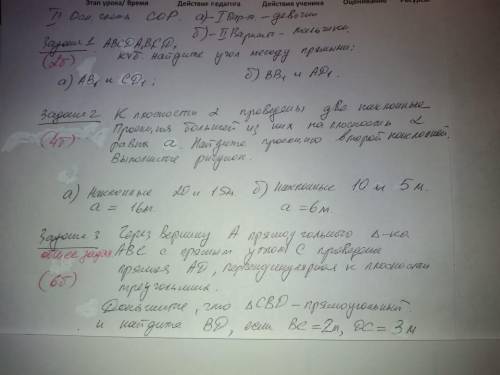 Этап урока/ Время Действия педагога Действия ученика Оценивание Ресурсы
II Осн. часть СОР. а) - I Вар-т - девочки
б) - II Вариант - мальчики
Задание 1 ABCDA₁B₁C₁D₁
(2б) куб. Найдите угол между прямыми:
а) AB₁ и CD₁; б) BB₁ и AD₁.
Задание 2 К плоскости α проведены две наклонные.
Проекция большей из них на плоскость α
(4б) равна a. Найдите проекцию второй наклонной.
Выполните рисунок.
а) Наклонные 20 и 15м. б) Наклонные 10 и 5м.
a = 16м. a = 6м.
Задание 3 Через вершину A прямоугольного Δ-ка
общее задан ABC с прямым углом C проведена
(6б) прямая AD, перпендикулярная к плоскости
треугольника.
Докажите, что ΔCBD - прямоугольный
и найдите BD, если BC = 2м, DC = 3м